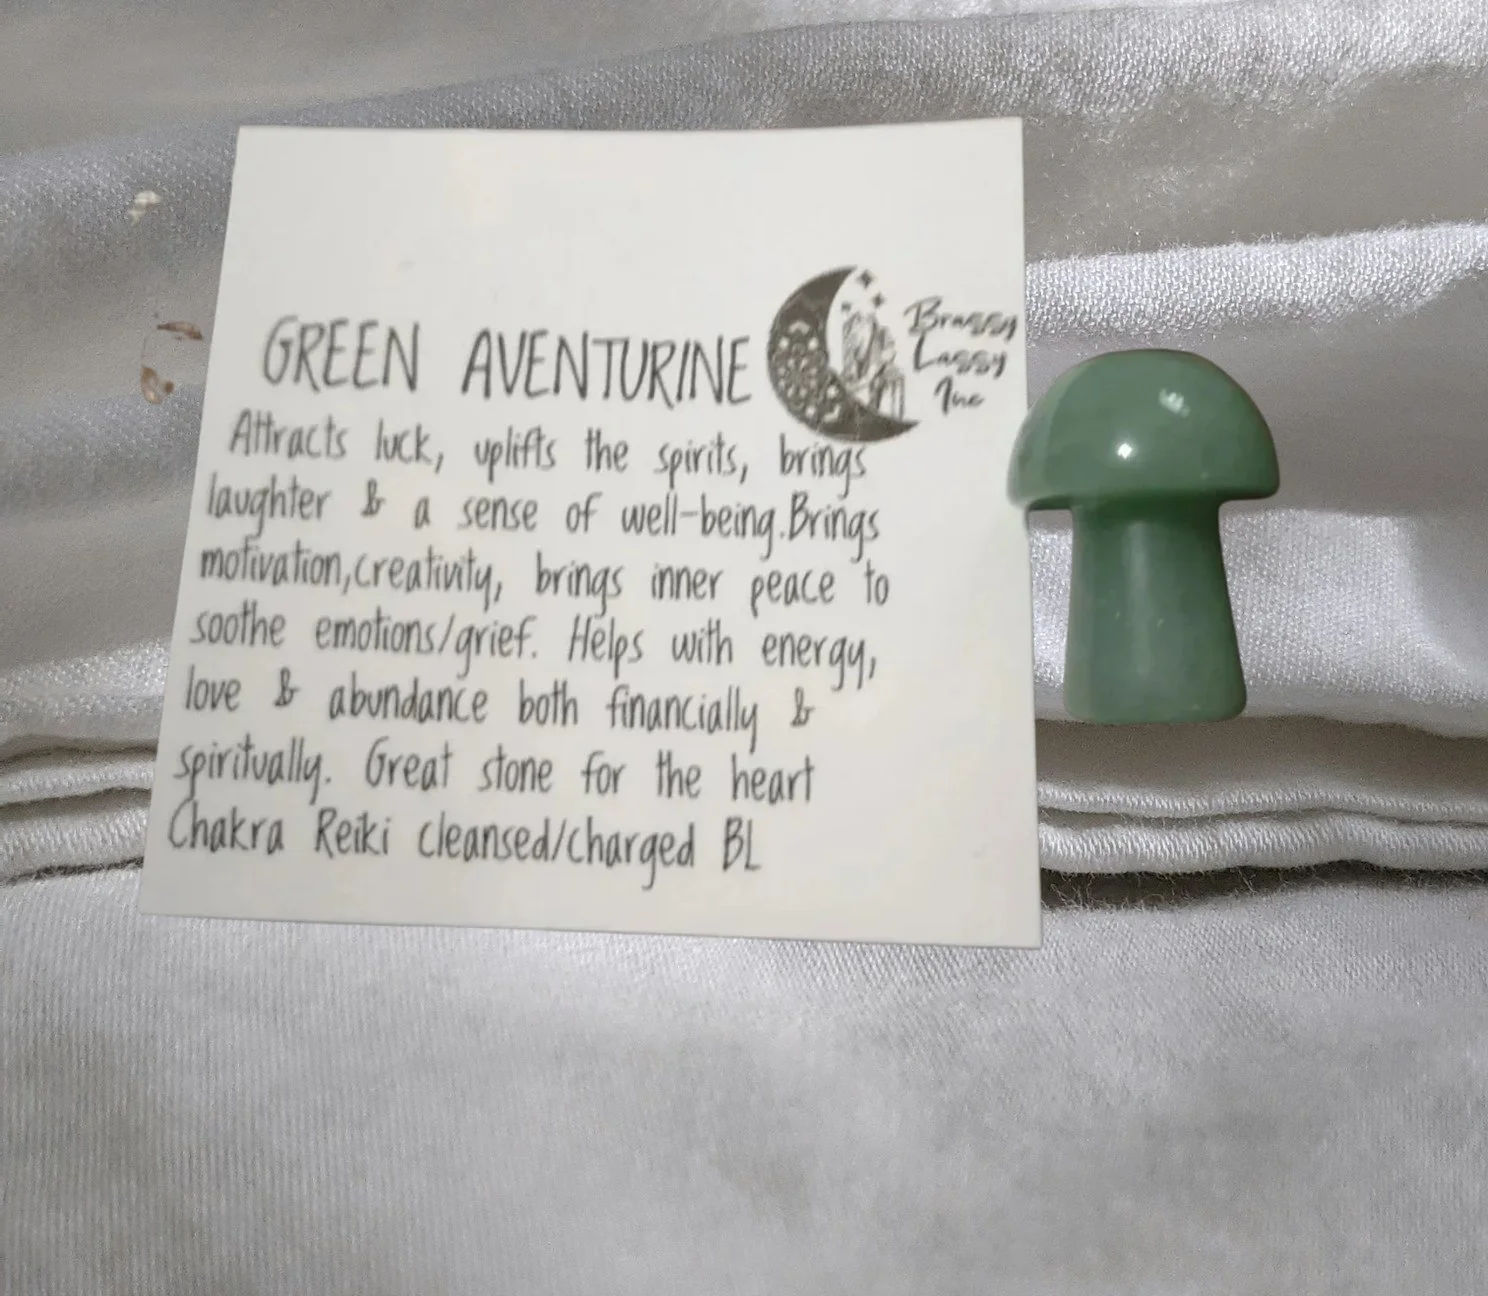 GREEN AVENTURINE
Brassy
Lassy
Inc
Attracts luck, uplifts the spirits, brings
laughter & a sense of well-being.Brings
motivation,creativity, brings inner peace to
soothe emotions/grief. Helps with energy,
love & abundance both financially &
spiritually. Great stone for the heart
Chakra Reiki cleansed/charged BL